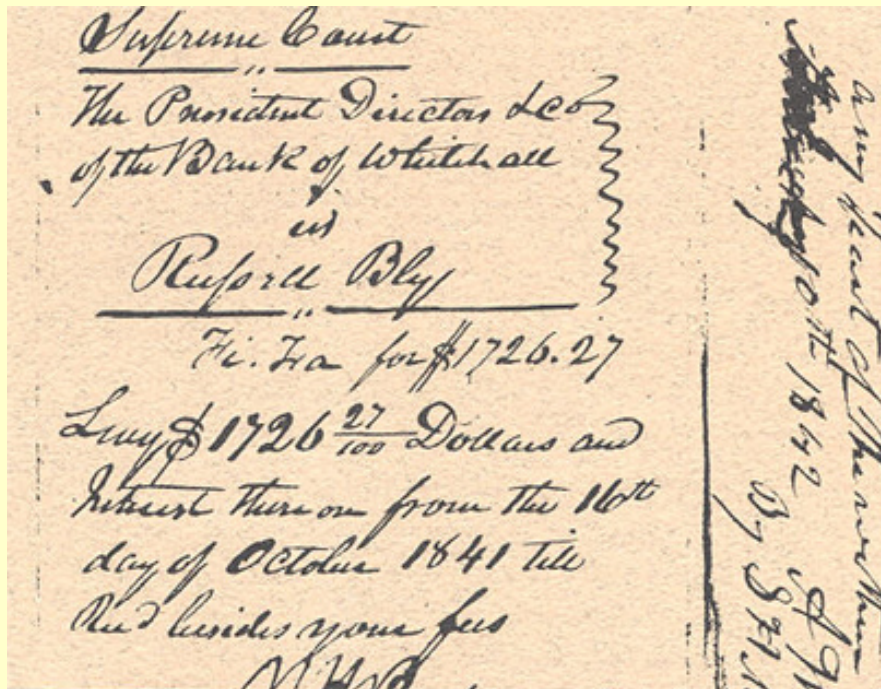 Supreme Court
The President Directors & Co
of the Bank of Whitehall
vs
Russell Bly
Fi. Fa for $1726.27
Levy $1726 27/100 Dollars and
Interest thereon from the 16th
day of October 1841 till
Recd besides your fees
10th 1842
By
any part of the within